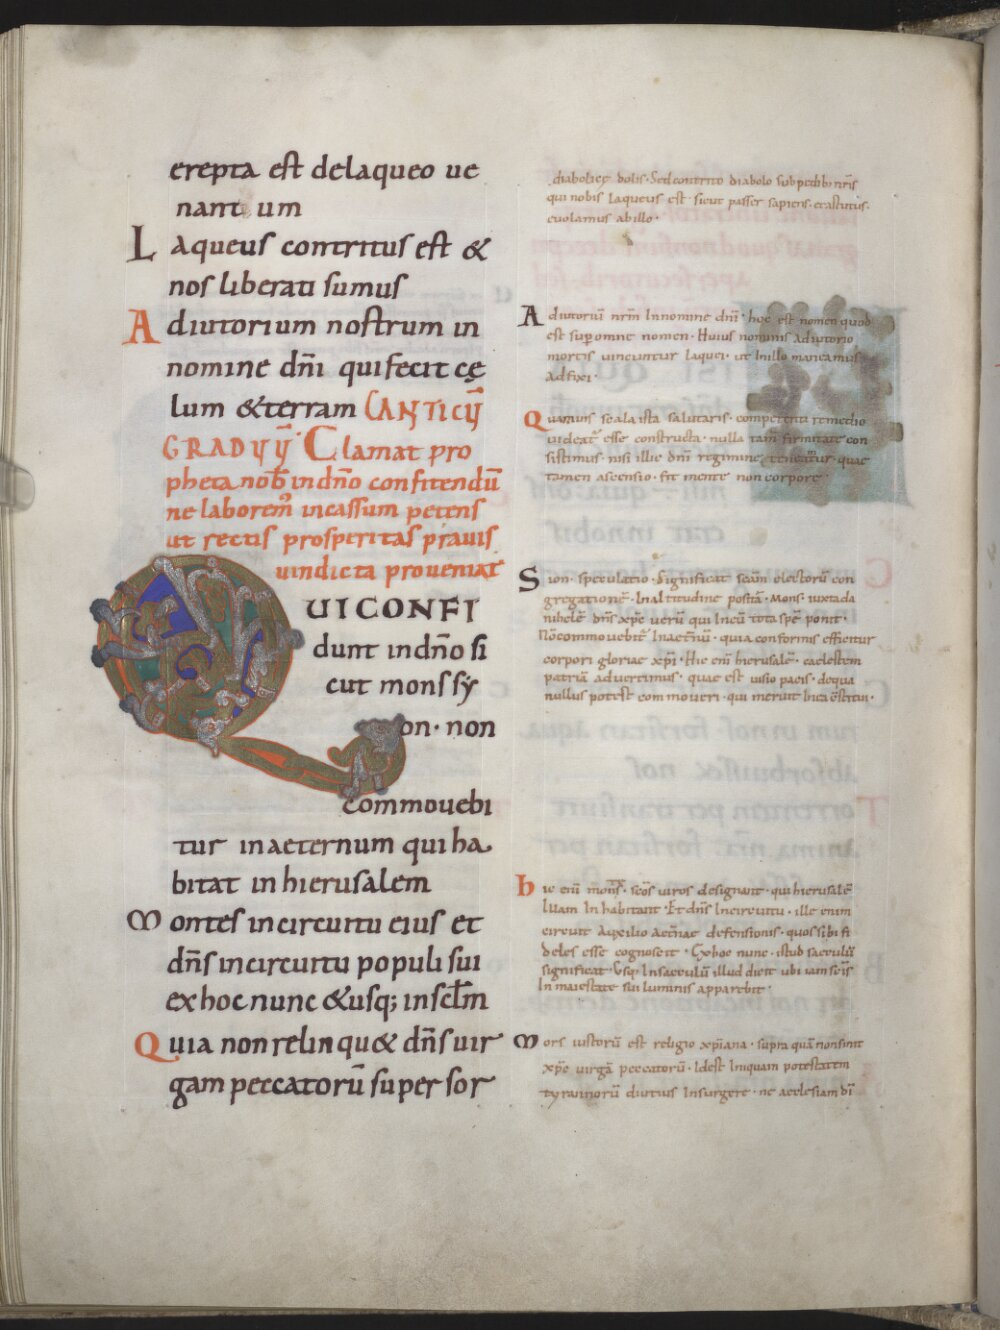 erepta est delaqueo ue
nantium
Laqueus contritus est &
nos liberati sumus
Adiutorium nostrum in
nomine dñi qui fecit cę
lum & terram CANTICŨ
GRADUŨ· Clamat pro
pheta nob in dño confitendũ
ne laborem incassum petens
ut rectis prosperitas prauis
uindicta proueniat
QUI CONFI
dunt in dño si
cut mons sy
on· non
commouebi
tur in aeternum qui ha
bitat in hierusalem
Montes in circuitu eius et
dñs in circuitu populi sui
ex hoc nunc & usq; in sclm
Quia non relinqu& dñs uir
gam peccatorũ super sor
dolis· Sed contrito diabolo sub pedib nris
qui nobis laqueus est· sicut passer sapiens· et astutus·
euolamus ab illo·
Adiutoriũ nrm In nomine dñi· hoc est nomen quod
est sup omne nomen· Huius nominis adiutorio
mortis uincuntur laquei· ut In illo maneamus
adfixi·
Quamuis scala ista salutaris· competenti remedio
uideat esse constructa· nulla tam firmitate con
sistimus· nisi illic dñi regimine teneamur· quae
tamen ascensio· fit mente non corpore·
Sion· speculatio· significat scam electorũ con
gregationẽ· In altitudine positã· Mons· iuxta da
nihelẽ· dñs xpc uerũ qui In eũ tota spẽ ponit·
Nõ commouebit In aetnũ· quia conformis efficietur
corpori gloriae xpi· Hic eni hierusalẽ· caelestem
patriã aduertimus· quae est uisio pacis· de qua
nullus potest commoueri· qui meruit
hic eni mons· scõs uiros designant· qui hierusalẽ
Illam In habitant· Et dñs In circuitu· ille enim
circuit auxilio aetnae defensionis· quos sibi fi
deles esse cognoscit· Ex hoc nunc· istud saeculũ
significat· Usq; In saeculũ illud dicit ubi iam scis
In maiestate sui luminis apparebit·
Mors iustorũ est religio xpiana· supra quã non sinit
xpc uirgã peccatorũ· Idest Iniquam potestatem
tyrannorũ diutius Insurgere· ne aecclesiam di